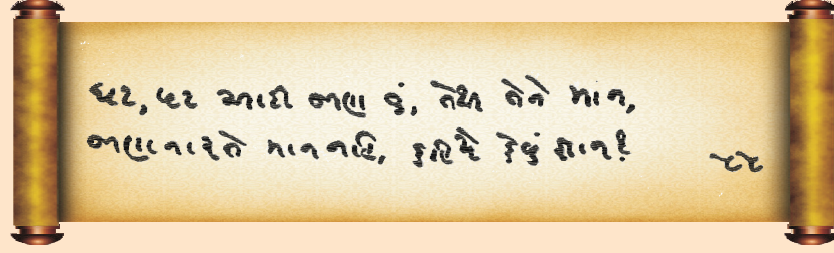 ઘટ, પટ આદી જાણ તું, તેથી તેને માન,
જાણનાર તે માન નહિ, કહિયે કેવું જ્ઞાન?
૫૫